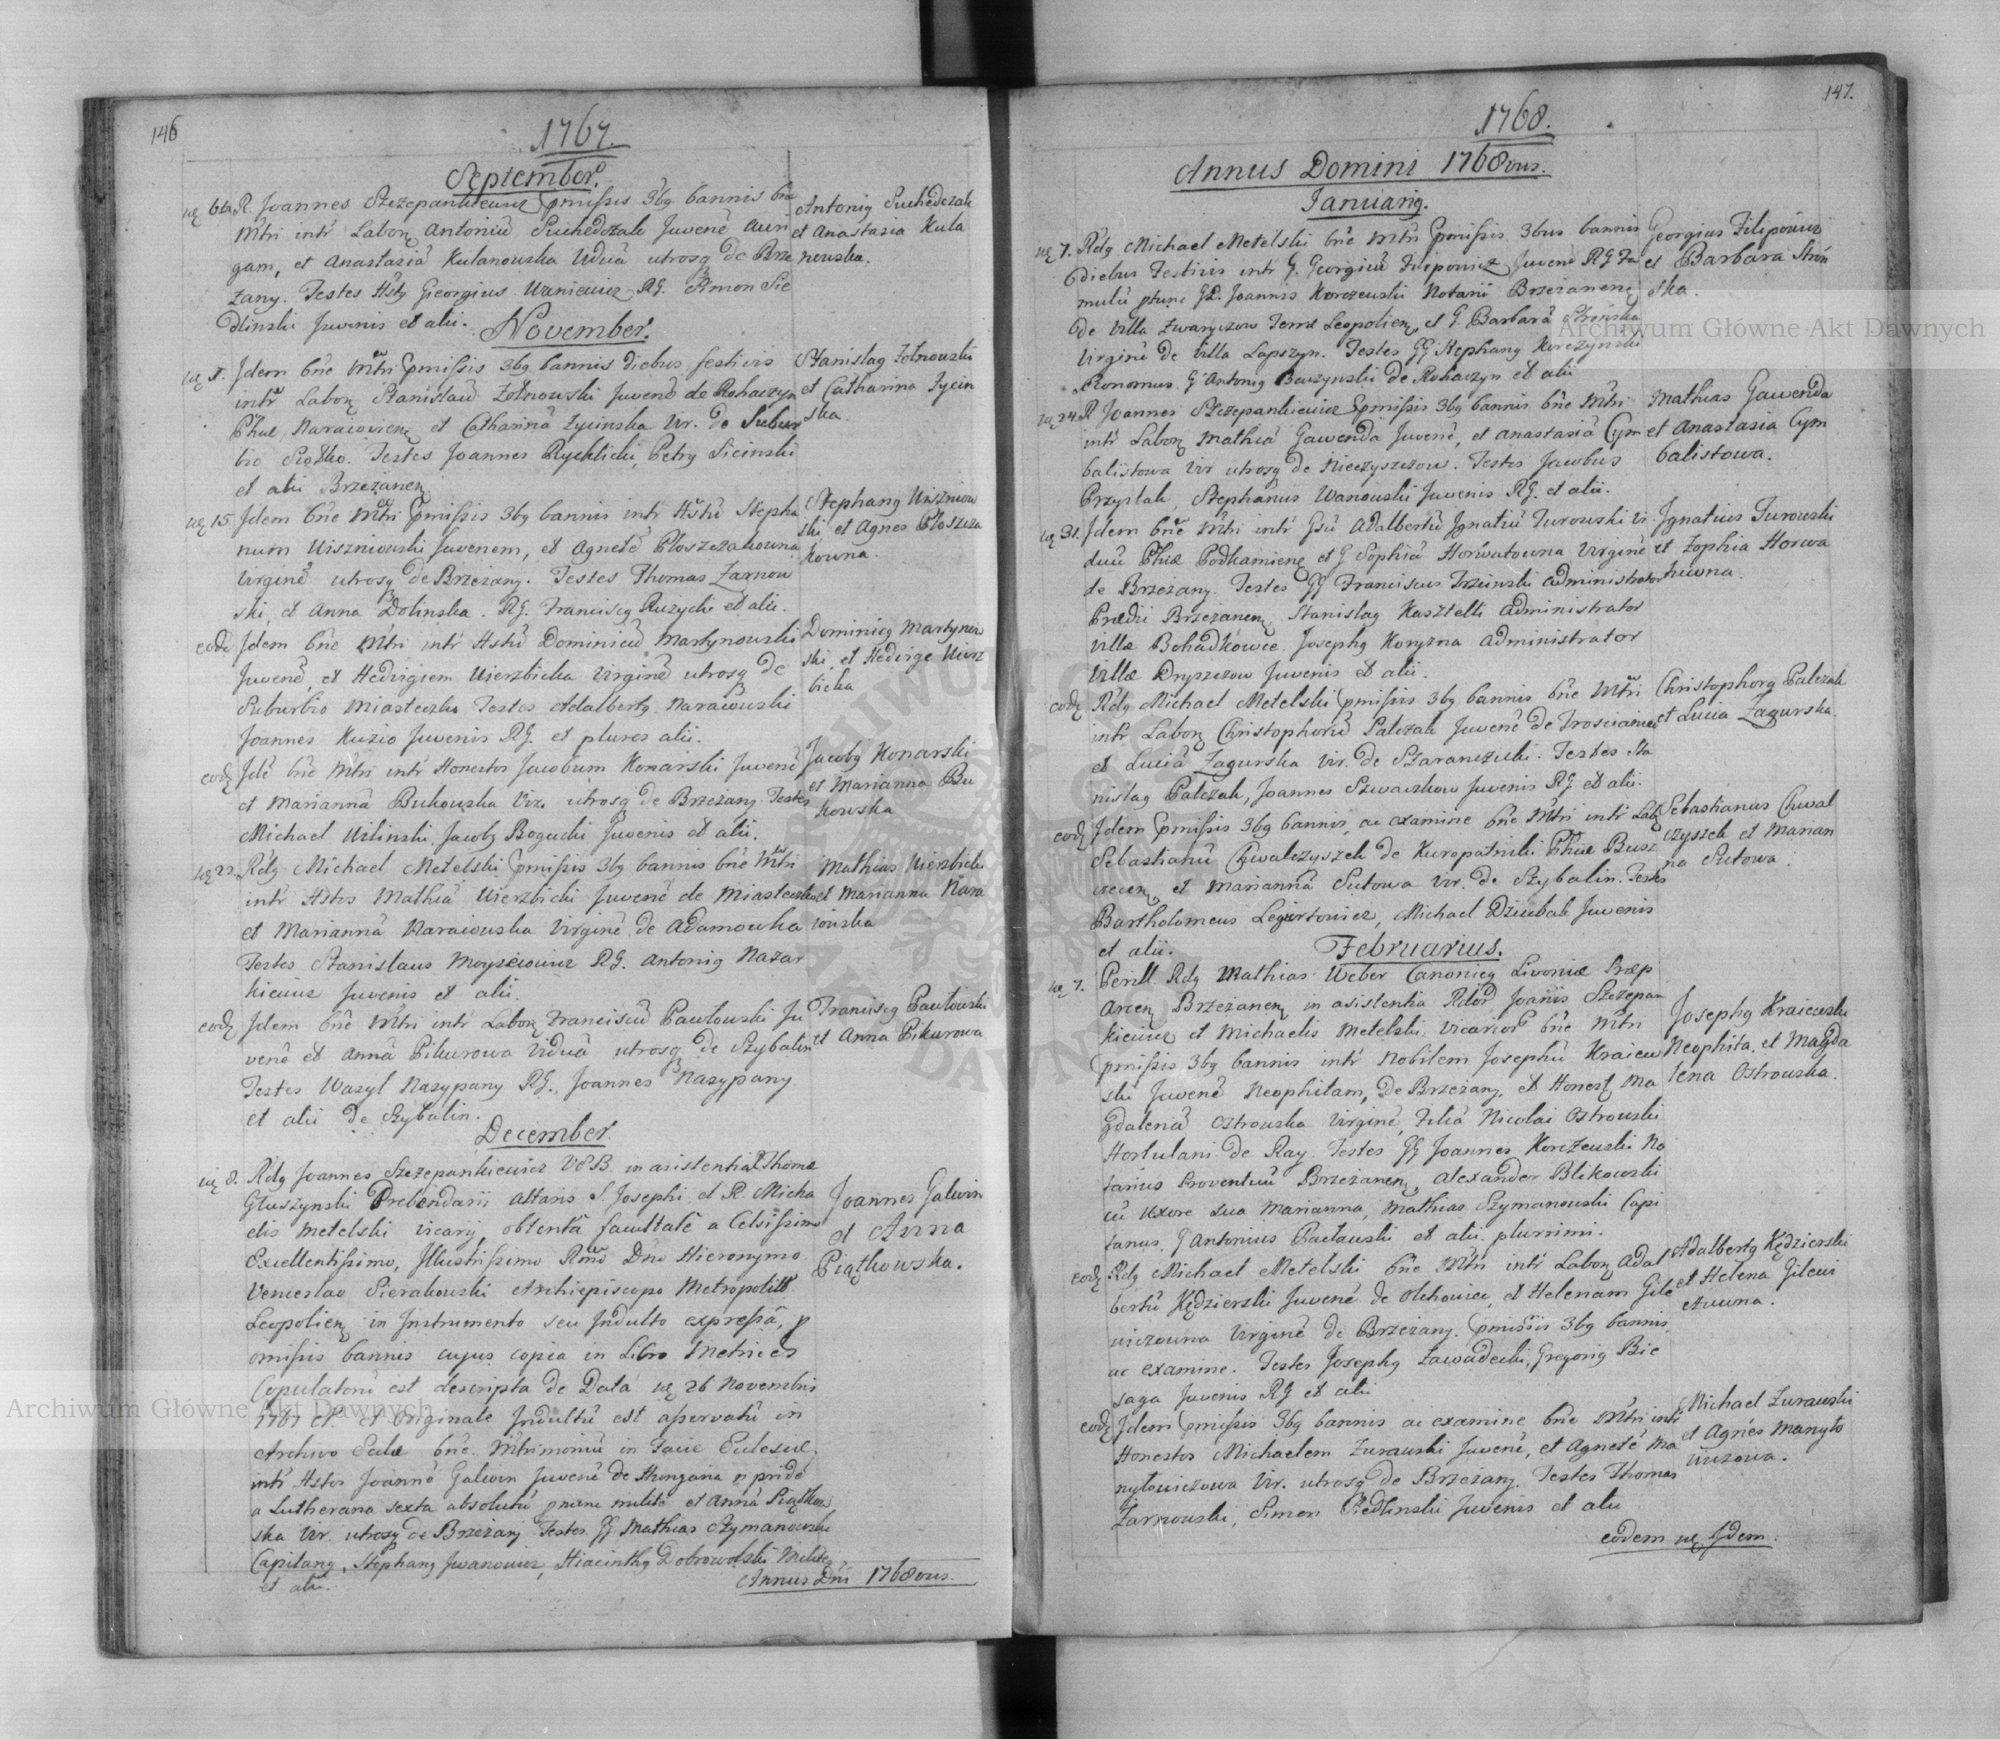 146
1767.
September.
6ta R. Joannes Szczepankiewicz pmissis 3bg bannis bne
Mtri intr Labor Antoniū Suchedzak Juvenē Aurī
gam, et Anastasiā Kulanowska Viduā utrosq de Brze
żany. Testes Hsty Georgius Waniewicz RG. Simon Sie
dlinski Juvenis et alii.
Antonig Suchedzak
et Anastasia Kula
nowska.
November.
Idem bne Mtri pmissis 3bg bannis diebus festivis
intr Labor Stanislaū Żołnowski Juvenē de Rohaczyn
Phiae Naraiovien et Catharinā Zycinska Vir. de Subur
bio Siołko. Testes Joannes Rychlicki, Petrg Sicinski
et alii Brzeżanen
Stanislag Żołnowski
et Catharina Zycin
ska.
15. Idem bne Mtri pmissis 3bg bannis intr Hstū Stepha
num Wiszniowski Juvenem, et Agnetē Płoszczakowna
Virginē utrosq de Brzeżany. Testes Thomas Żarnow
ski, et Anna Dolinska. RG. Franciscg Rużycki et alii.
Stephang Wiszniow
ski, et Agnes Płoszcza
kowna.
eodē Idem bne Mtri intr Hstū Dominicū Martynowski
Juvenē, et Hedvigiem Wierzbicka Virginē utrosq de
Suburbio Miasteczko Testes Adalbertg Naraiowski
Joannes Kuzio Juvenis RG. et plures alii.
Dominicg Martynow
ski, et Hedvige Wierz
bicka
eod Idē bne Mtri intr Honestos Jacobum Konarski Juvenē
et Mariannā Bukowska Vir. utrosq de Brzeżany. Testes
Michael Wilinski Jacobg Bogucki Juvenis et alii.
Jacobg Konarski
et Marianna Bu
kowska
22. Rdg Michael Metelski pmissis 3bg bannis bne Mtri
intr Hstos Mathiā Wierzbicki Juvenē de Miasteczko
et Mariannā Naraiowska Virginē de Adamowka
Testes Stanislaus Moysēiowicz RG. Antonig Nazar
kiewicz Juvenis et alii.
Mathias Wierzbicki
et Marianna Nara
iowska
eod Idem bne Mtri intr Labor Franciscū Pawłowski Ju
venē et Annā Pikurowa Viduā utrosq de Szybalin
Testes Wasyl Nasypany RG., Joannes Nasypany
et alii de Szybalin.
Franciscg Pawłowski
et Anna Pikurowa
December.
8. Rdg Joannes Szczepankiewicz VEB. in asistentia R Thomæ
Głuszynski Prebendarii altaris S. Josephi et R. Micha
elis Metelski vicarij, obtentā facultatē a Celsissimo
Excellentissimo, Illustrissimo Rmo Dno Hieronymo
Venceslao Sierakowski Archiepiscopo Metropolit
Leopolien in Instrumento seu Indulto expressā, p
omissis bannis cujus copia in Libro Metrices
Copulatorū est descripta de Datā 26 Novembris
1767 et Originale Indultū est aservatū in
Archivo Eccles bne Mtrimoniū in Facie Ecclesiæ
intr Hstos Joannē Galwin Juvenē de Hungaria p pridē
a Lutherana secta absolutū pnunc militē et Annā Piątkow
ska Vir. utrosq de Brzeżany Testes GG Mathias Szymanowski
Capitang, Stephang Jwanowicz, Hiacinthg Dobrowolski Milites
et alii.
Joannes Galwin
et Anna
Piątkowska.
Annus Dni 1768vus.
147.
1768.
Annus Domini 1768vus.
Januarig.
7. Rdg Michael Metelski bne Mtri pmissis 3bus bannis
diebus Festivis intr G. Georgiū Filipowicz Juvenē RG Fa
mulū ptunc GD. Joannis Korczewski Notarii Brzeżanen
de Villa Zwaryczow Terræ Leopolien, et G. Barbarā Strońska
Virginē de Villa Łapszyn. Testes GG Stephang Korczynski
Æconomus. G Antonig Baczynski de Rohaczyn et alii
Georgius Filipowicz
et Barbara Stroń
ska.
24. R Joannes Szczepankiewicz pmissis 3bg bannis bne Mtri
intr Labor Mathiā Gawenda Juvenē, et Anastasiā Cym
balistowa Vir utrosq de Nieczyszczow. Testes Jacobus
Przystak, Stephanus Wanowski Juvenis RG. et alii.
Mathias Gawenda
et Anastasia Cym
balistowa.
31. Idem bne Mtri intr Gsū Adalbertū Ignatiū Turowski Vi
duū Phiæ Podkamiene et G Sophiā Horwatowna Virginē
de Brzeżany. Testes GG Franciscus Trzcinski Administrator
Prædii Brzeżanen, Stanislag Kasztelli Administrator
Villæ Bohadkowce. Josephg Koryzna Administrator
Villæ Dryszczow Juvenis et alii.
Ignatius Turowski
et Zophia Horwa
towna.
eod Rdg Michael Metelski pmissis 3bg bannis bne Mtri
intr Labor Christophorū Palczak Juvenē de Trościaniec
et Luciā Zagurska Vir. de Szaranczuki. Testes Sta
nislag Palczak, Joannes Szwaczkow Juvenis RG et alii.
Christophorg Palczak
et Lucia Zagurska.
eod Idem pmissis 3bg bannis, ac examine bne Mtri intr Lab
Sebastianū Chwalczyszek de Kuropatniki Phiæ Busz
czecen et Mariannā Sutowa Vir. de Szybalin. Testes
Bartholomeus Legiirtowicz, Michael Dziubak Juvenis
et alii.
Sebastianus Chwal
czyszek et Marian
na Sutowa.
Februarius.
7. Perill. Rdg Mathias Weber Canonicg Livoniæ Præp
Arcen Brzeżanen in asistentia Rdor Joanis Szczepan
kiewicz et Michaelis Metelski Vicarior bne Mtri
pmissis 3bg bannis intr Nobilem Josephū Kraiew
ski Juvenē Neophitam, de Brzeżany, et Honest Ma
gdalenā Ostrowska Virginē, Filiā Nicolai Ostrowski
Hortulani de Ray Testes GG Joannes Korczewski No
tarius Proventuū Brzeżanen, Alexander Blikowski
cū Uxore sua Marianna, Mathias Szymanowski Capi
tanus. G Antonius Pawłowski et alii plurimi.
Josephg Kraiewski
Neophita, et Magda
lena Ostrowska.
eod Rdg Michael Metelski bne Mtri intr Labor Adal
bertū Kędzierski Juvenē de Olchowiec, et Helenam Gile
wiczowna Virginē de Brzeżany. pmissis 3bg bannis
ac examine. Testes Josephg Zawadecki, Gregorig Bie
saga Juvenis RG et alii
Adalbertg Kędzierski
et Helena Gilewi
czowna.
eod Idem pmissis 3bg bannis ac examine bne Mtri intr
Honestos Michaelem Zurawski Juvenē, et Agnetē Ma
nyłowiczowa Vir. utrosq de Brzeżany. Testes Thomas
Żarnowski, Simon Siedlinski Juvenis et alii
Michael Zurawski
et Agnes Manyło
wiczowa.
eodem Idem.
Archiwum Główne Akt Dawnych
Archiwum Główne Akt Dawnych